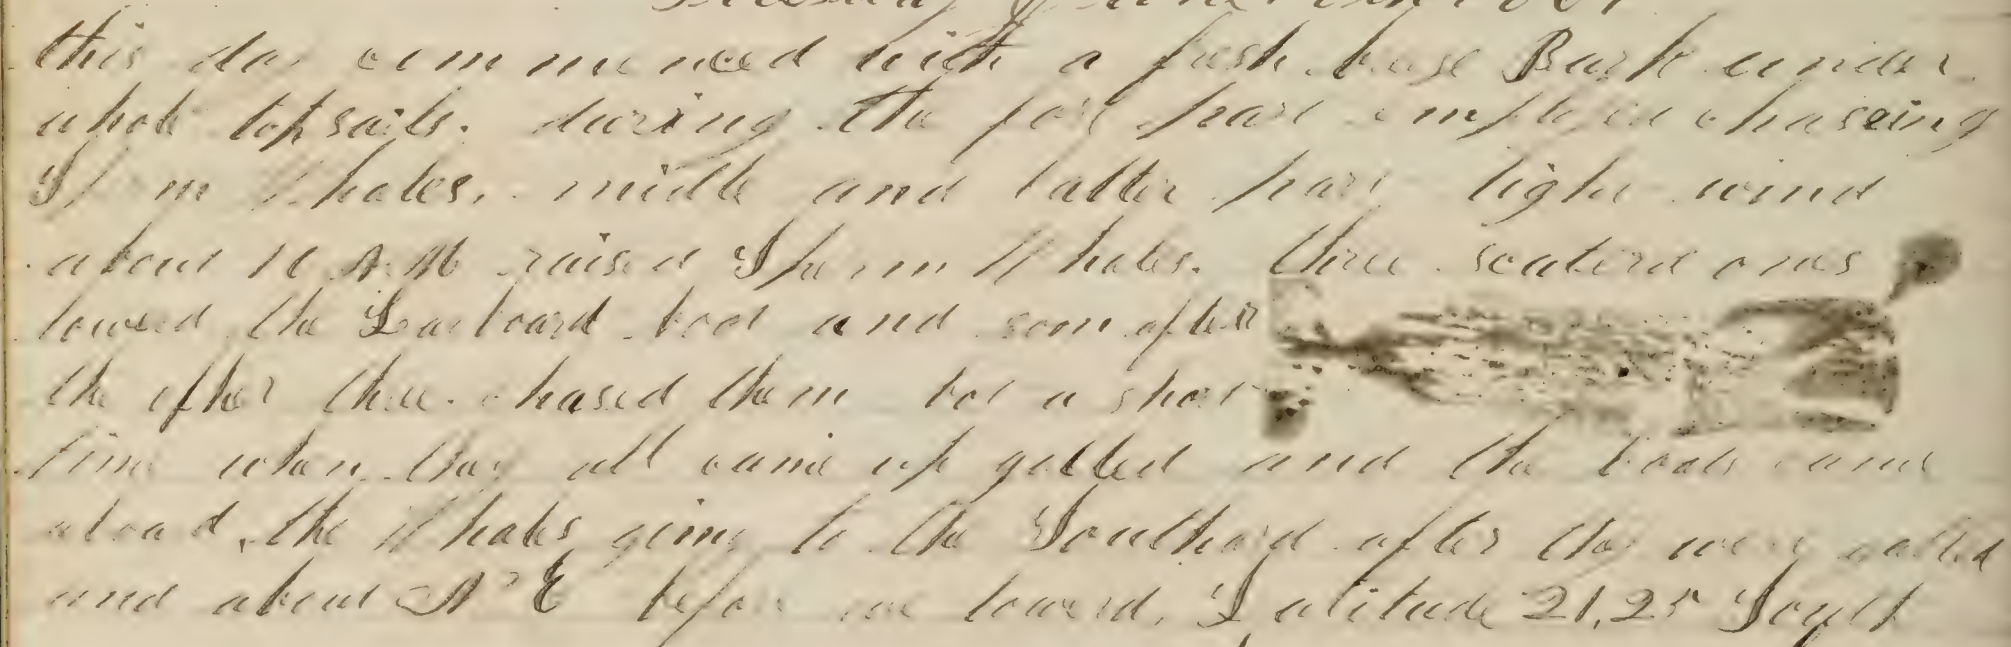 this day commenced with a fresh breese Bark under
whole topsails. during the fore part employed chaseing
Sperm Whales. midle and latter part light wind
about 10 A.M raised Sperm Whales. three scatterd ones
lowerd the Larboard boat and soon after
the other three. chased them bot a short
time when they all came up gallied and the boats came
aboard, the Whales going to the Southard after they were gallied
and about N E before we lowerd, Latitude 21,25 South